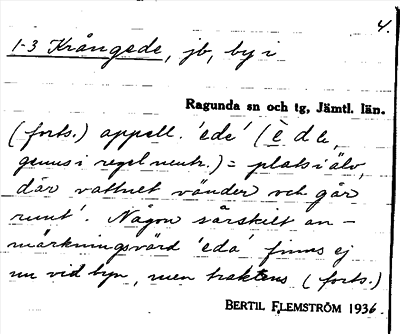 4.
1-3 Krångede, jb, by i
Ragunda sn och tg, Jämtl. län.
(forts.) appell. 'ede' (è d e,
genus i regel neutr.) = plats i älv,
där vattnet vänder och går
runt'. Någon särskilt an-
märkningsvärd 'eda' finns ej
nu vid byn, men traktens (forts.)
BERTIL FLEMSTRÖM 1936.